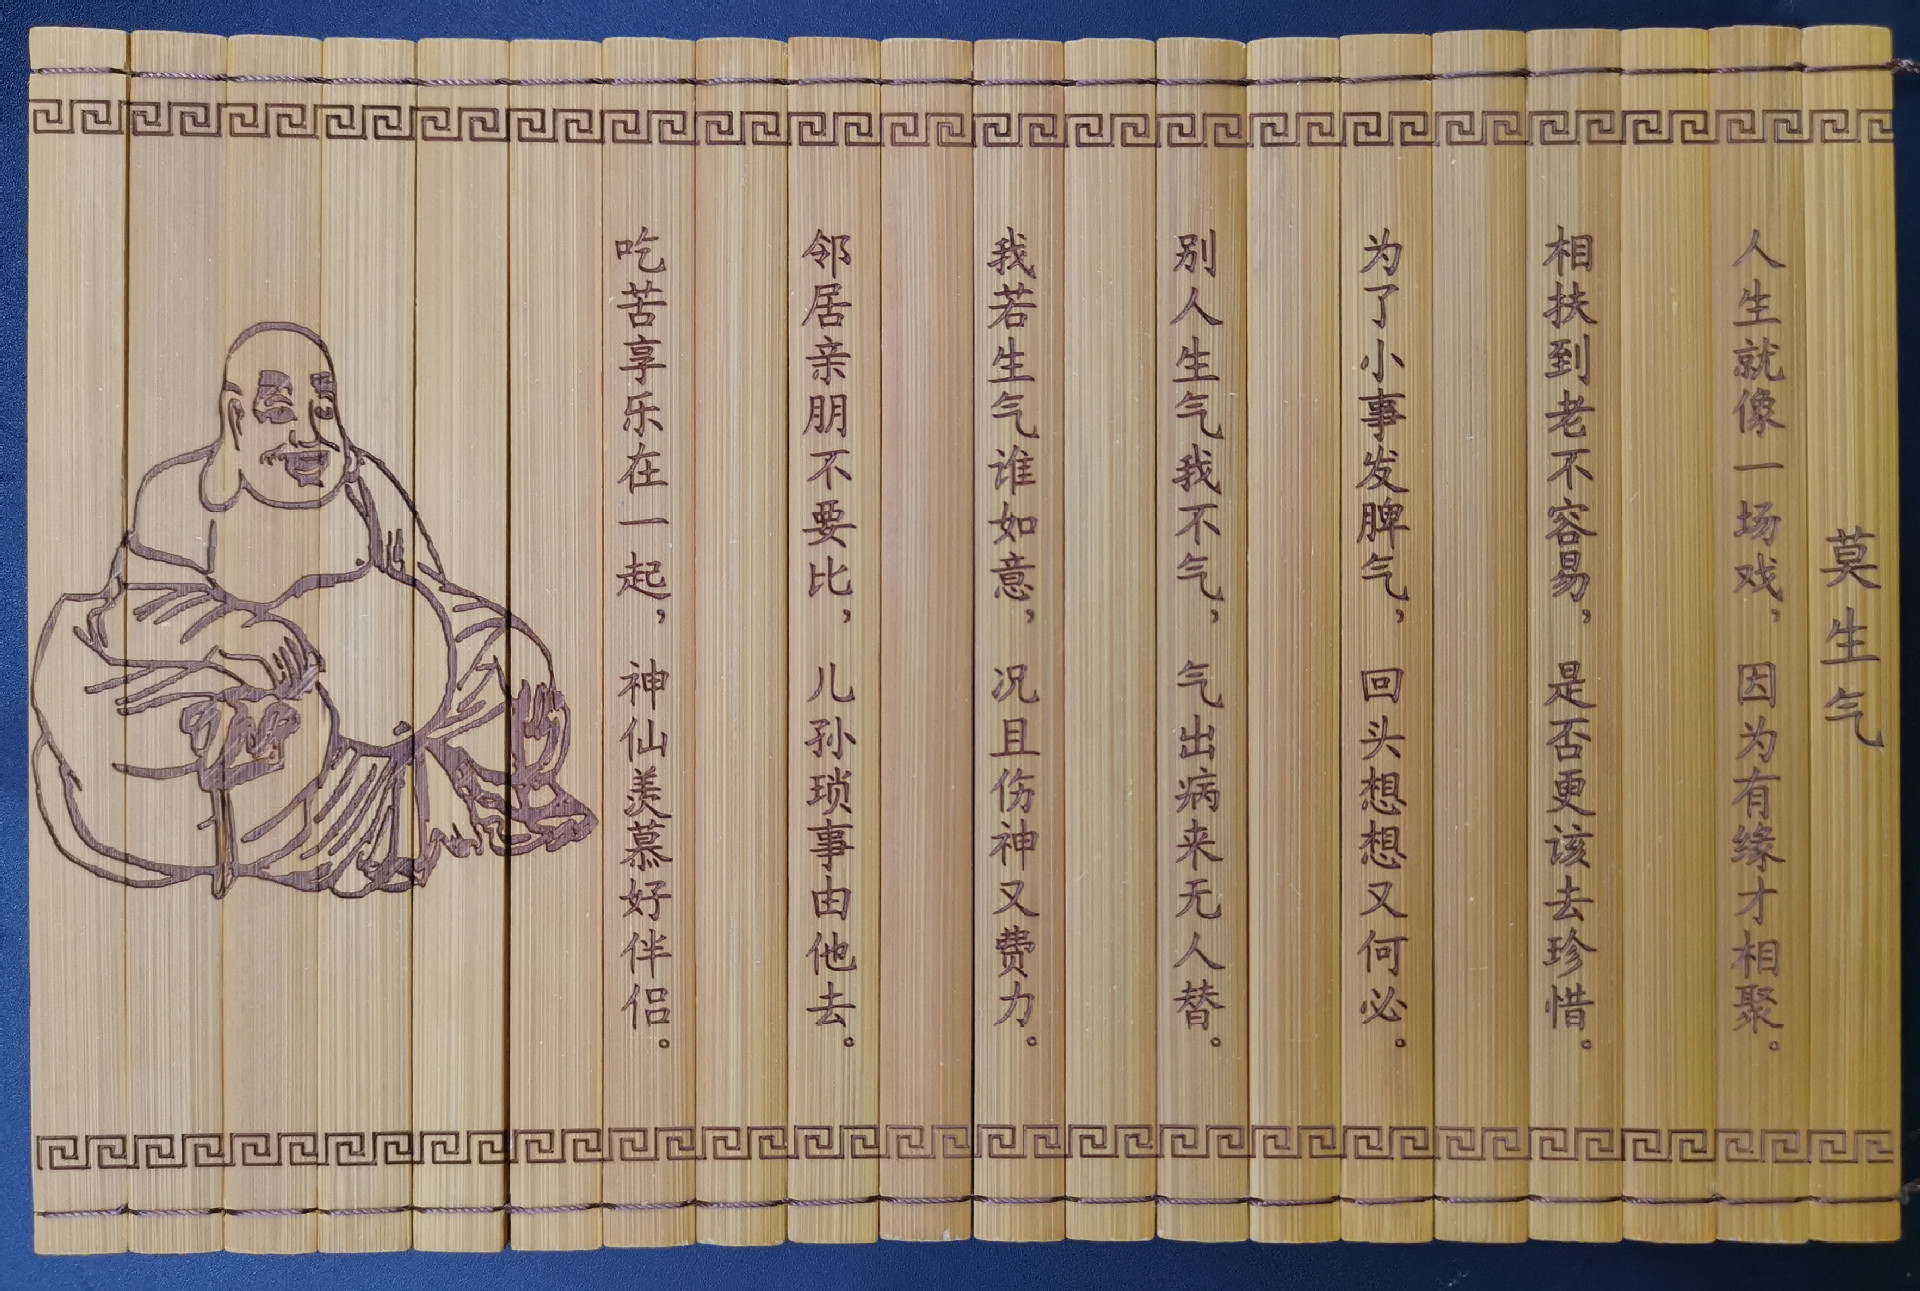 莫生气
人生就像一场戏，因为有缘才相聚。
相扶到老不容易，是否更该去珍惜。
为了小事发脾气，回头想想又何必。
别人生气我不气，气出病来无人替。
我若生气谁如意，况且伤神又费力。
邻居亲朋不要比，儿孙琐事由他去。
吃苦享乐在一起，神仙羡慕好伴侣。